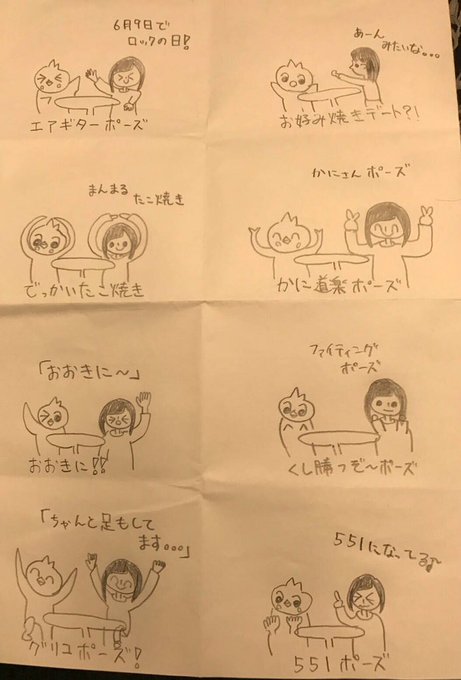 6月9日で
ロックの日!
エアギターポーズ
あーん
みたいな。。。
お好み焼きデート?!
まんまる
たこ焼き
でっかいたこ焼き
かにさんポーズ
かに道楽ポーズ
「おおきに〜」
おおきに!!
ファイティング
ポーズ
くし勝つぞ〜ポーズ
「ちゃんと足もして
ます。。。」
グリコポーズ!
551になってる♪
551ポーズ